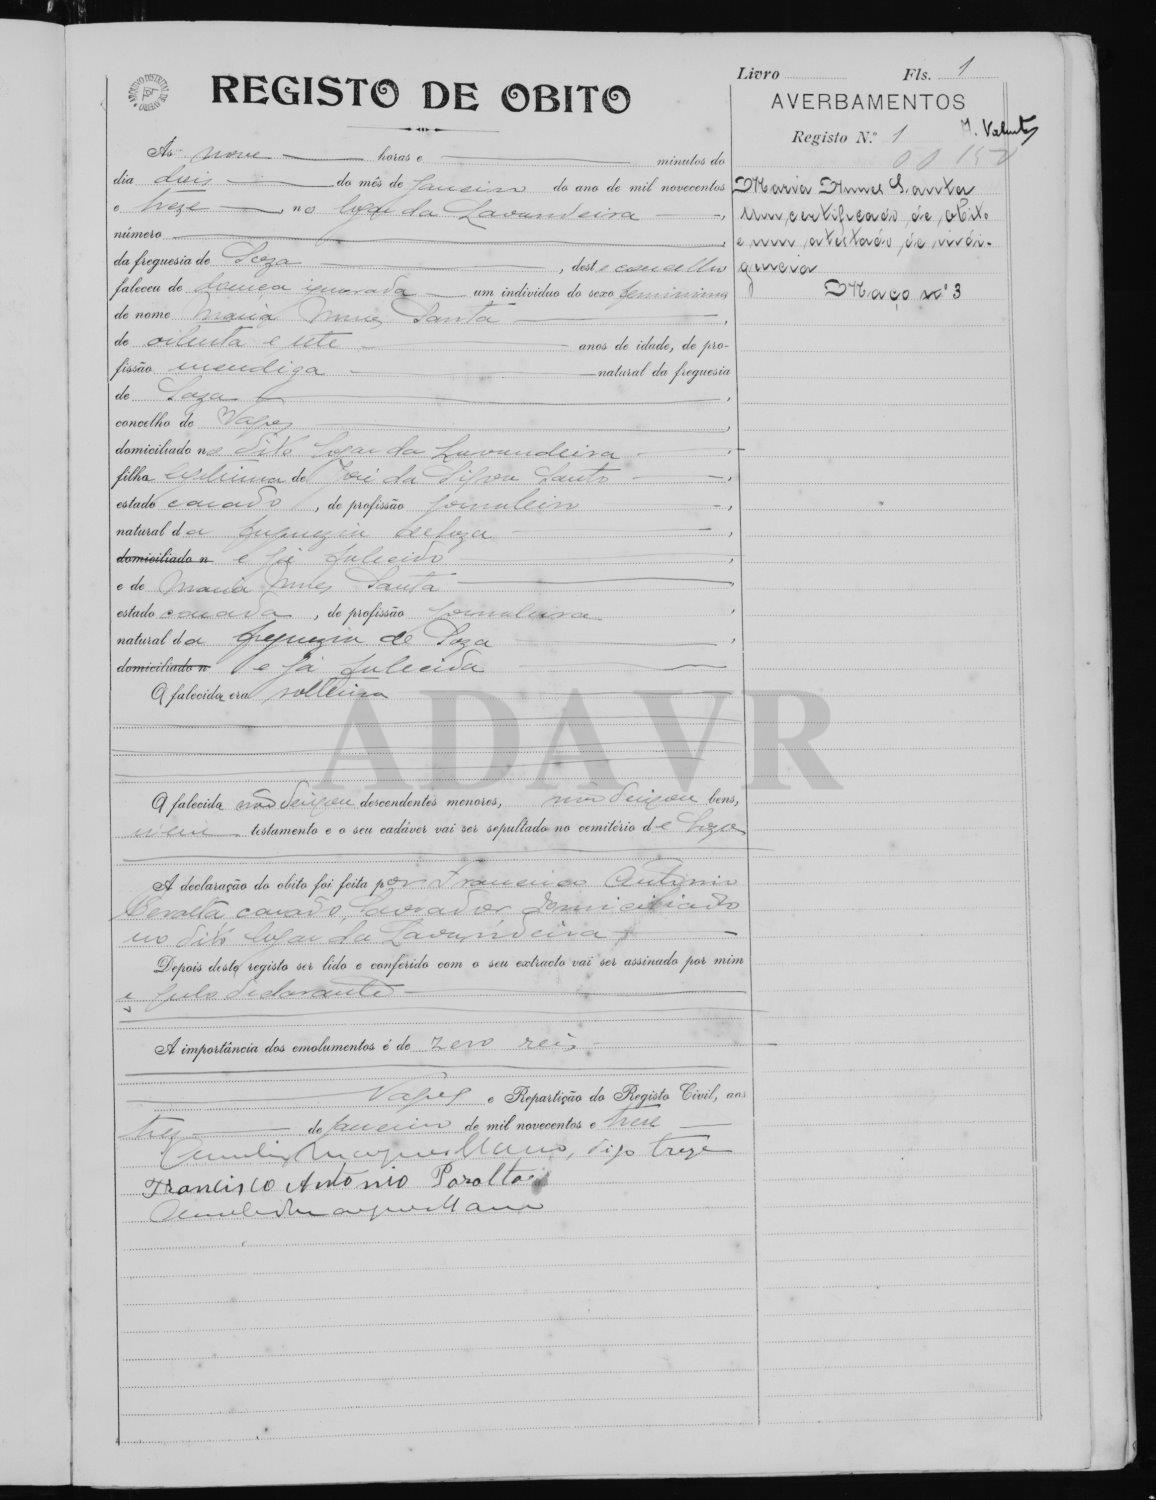 Livro Fls. 1
REGISTO DE OBITO
AVERBAMENTOS
Registo N.º 1
Maria Nunes Santa
Um certificado de obito
e um atestado de indi-
gencia
Maço nº 3
Às nove horas e minutos do
dia dois do mês de Janeiro do ano de mil novecentos
e treze, no logar da Lavandeira,
número
da freguesia de Soza, deste concelho
faleceu de doença ignorada um individuo do sexo feminino
de nome Maria Nunes Santa,
de oitenta e sete anos de idade, de pro-
fissão mendiga natural da freguesia
de Soza,
concelho de Vagos,
domiciliado no dito logar da Lavandeira,
filha legitima de José da Silva Santo,
estado casado, de profissão jornaleiro,
natural da freguezia de Soza,
domiciliado n e já falecido,
e de Maria Nunes Santa,
estado casada, de profissão jornaleira,
natural da freguezia de Soza,
domiciliado n e já falecida
A falecida era solteira
ADAVR
A falecida não deixou descendentes menores, não deixou bens,
nem testamento e o seu cadáver vai ser sepultado no cemitério de Soza
A declaração do obito foi feita por Francisco António
Peralta, casado, lavrador domiciliado
no dito logar da Lavandeira
Depois deste registo ser lido e conferido com o seu extracto vai ser assinado por mim
e pelo declarante
A importância dos emolumentos é de zero reis
Vagos e Repartição do Registo Civil, aos
tres de Janeiro de mil novecentos e treze
digo treze
Francisco António Paralta